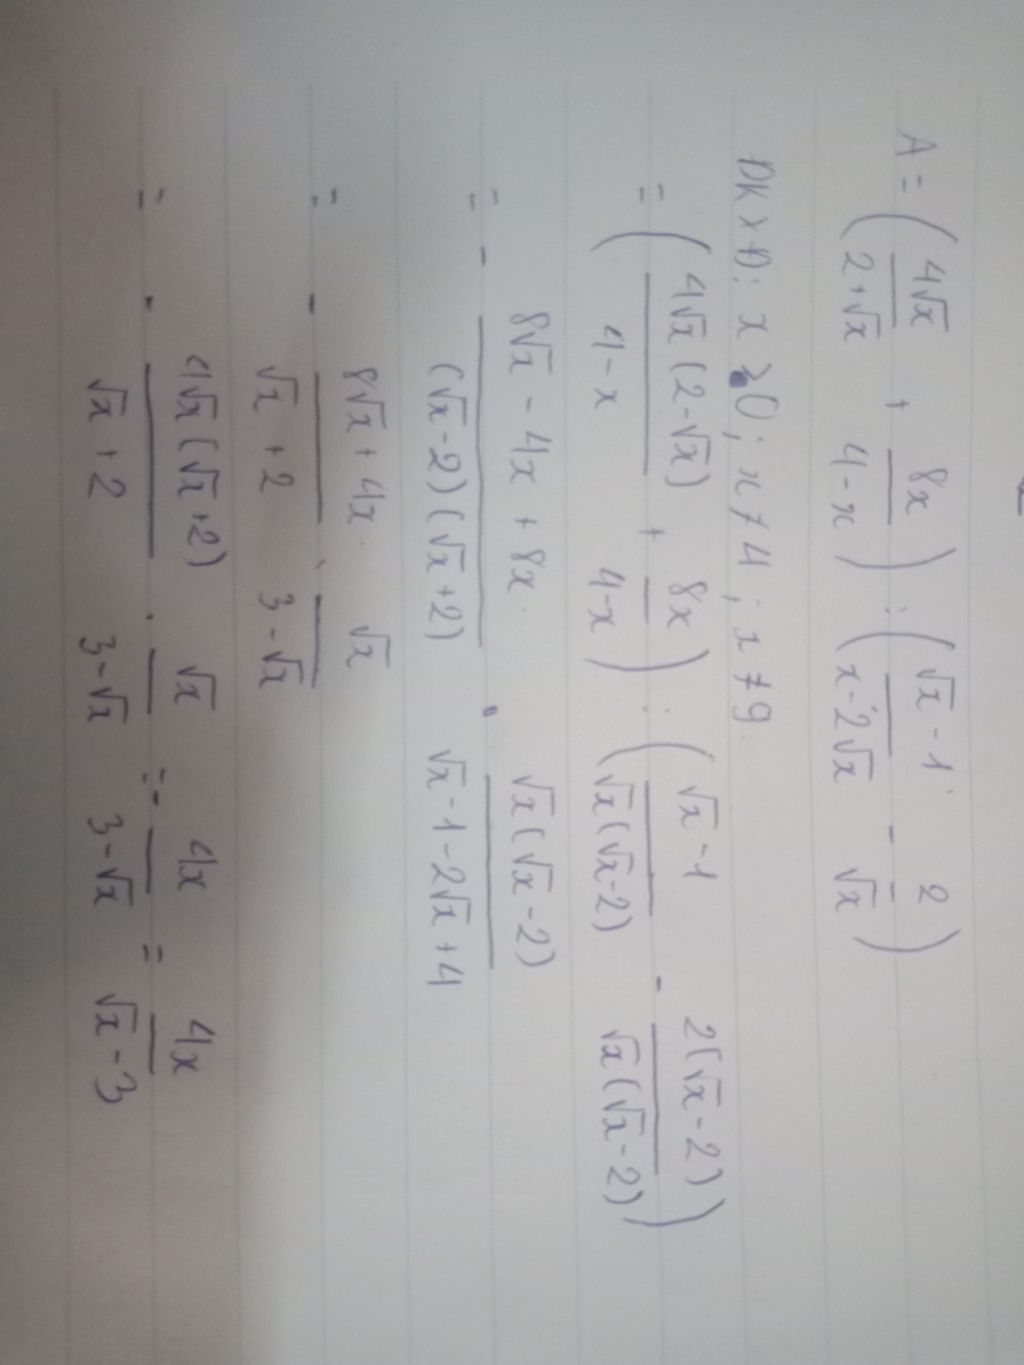 A = (4√x / 2+√x + 8x / 4-x) : (√x-1 / x-2√x - 2 / √x)
ĐKXĐ: x ≥ 0; x ≠ 4; x ≠ 9.
= (4√x(2-√x) / 4-x + 8x / 4-x) : (√x-1 / √x(√x-2) - 2(√x-2) / √x(√x-2))
= - 8√x - 4x + 8x / (√x-2)(√x+2) . √x(√x-2) / √x-1-2√x+4
= - 8√x + 4x / √x+2 . √x / 3-√x
= - 4√x(√x+2) / √x+2 . √x / 3-√x = - 4x / 3-√x = 4x / √x-3